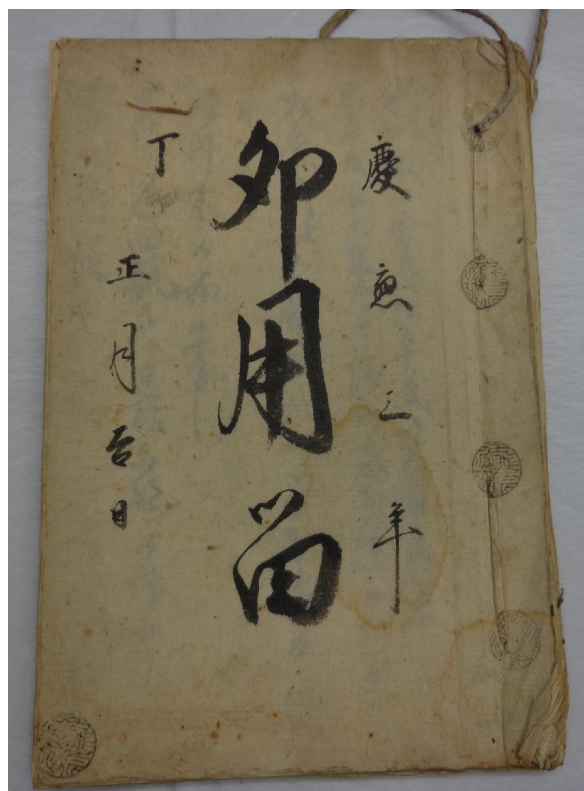 慶應三年
卯用留
丁
正月吉日